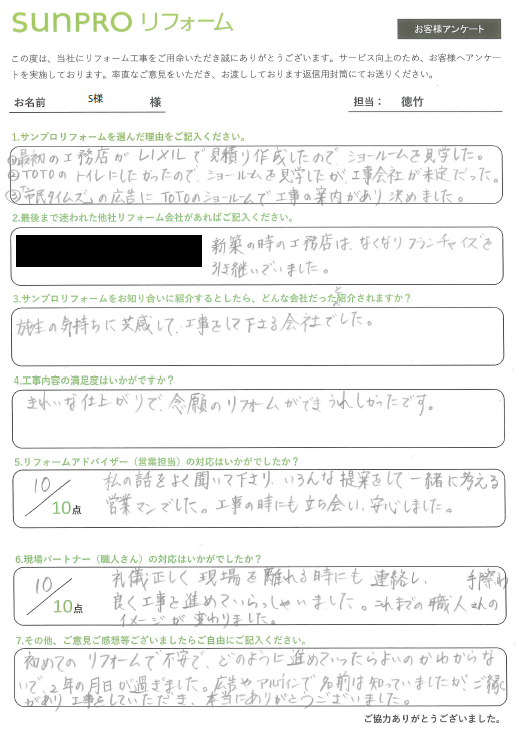 SUNPRO リフォーム
お客様アンケート
この度は、当社にリフォーム工事をご用命いただき誠にありがとうございます。サービス向上のため、お客様へアンケー
トを実施しております。率直なご意見をいただき、お渡ししております返信用封筒にてお送りください。
お名前 S様 様 担当： 徳竹
1.サンプロリフォームを選んだ理由をご記入ください。
①最初の工務店がLIXILで見積り作成したので、ショールームを見学した。
②TOTOのトイレにしたかったので、ショールームを見学したが、工事会社が未定だった。
③「市民タイムズ」の広告にTOTOのショールームで工事の案内があり決めました。
2.最後まで迷われた他社リフォーム会社があればご記入ください。
新築の時の工務店は、なくなりフランチャイズを
引き継いでいました。
3.サンプロリフォームをお知り合いに紹介するとしたら、どんな会社だったと紹介されますか？
施主の気持ちに共感して、工事をして下さる会社でした。
4.工事内容の満足度はいかがですか？
きれいな仕上がりで、念願のリフォームができうれしかったです。
5.リフォームアドバイザー（営業担当）の対応はいかがでしたか？
10／10点
私の話をよく聞いて下さり、いろんな提案をして一緒に考える
営業マンでした。工事の時にも立ち会い、安心しました。
6.現場パートナー（職人さん）の対応はいかがでしたか？
10／10点
礼儀正しく現場を離れる時にも連絡し、手際も
良く工事を進めていらっしゃいました。これまでの職人さんの
イメージが変わりました。
7.その他、ご意見ご感想等ございましたらご自由にご記入ください。
初めてのリフォームで不安で、どのように進めていったらよいのかわからな
いで、2年の月日が過ぎました。広告やアルウィンで名前は知っていましたが、ご縁
があり工事をしていただき、本当にありがとうございました。
ご協力ありがとうございました。